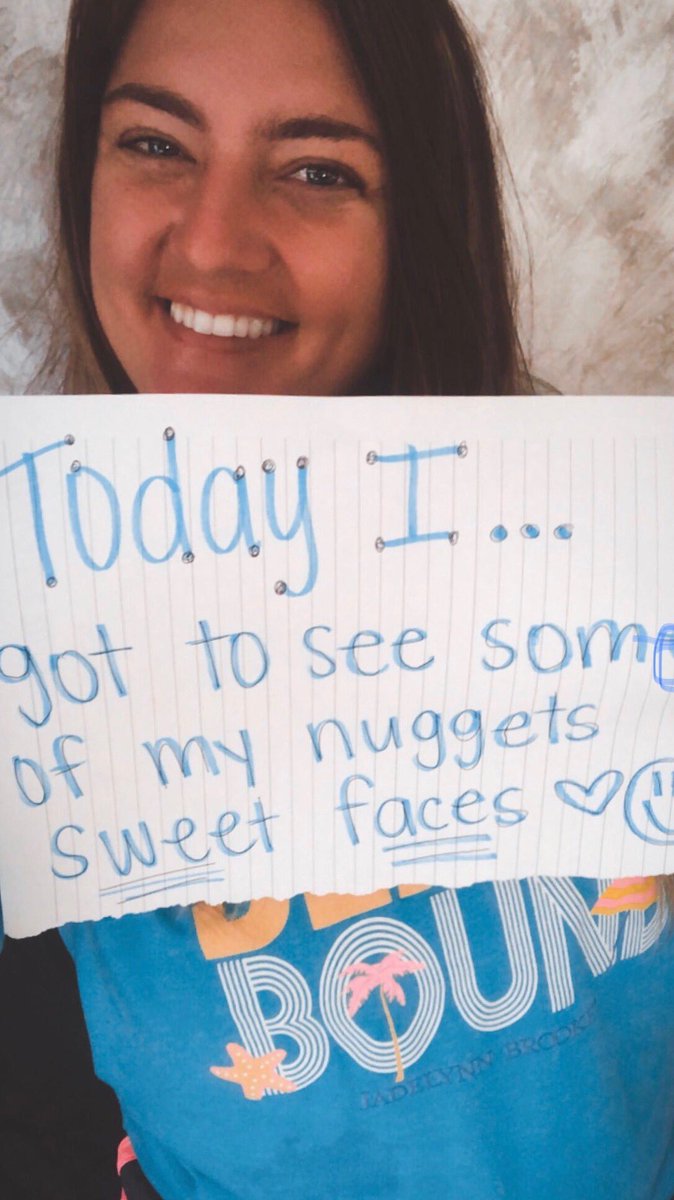 Today I...
got to see some
of my nuggets
sweet faces
BOUND
JADELYNN BROOKE